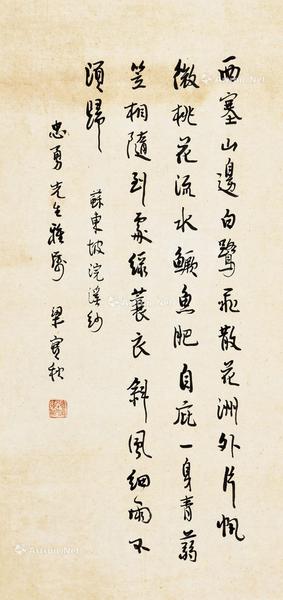 西塞山邊白鷺飛散花洲外片帆
微桃花流水鱖魚肥自庇一身青蒻
笠相隨到處綠蓑衣斜風細雨不
須歸
蘇東坡浣溪紗
忠勇先生雅屬 梁實秋